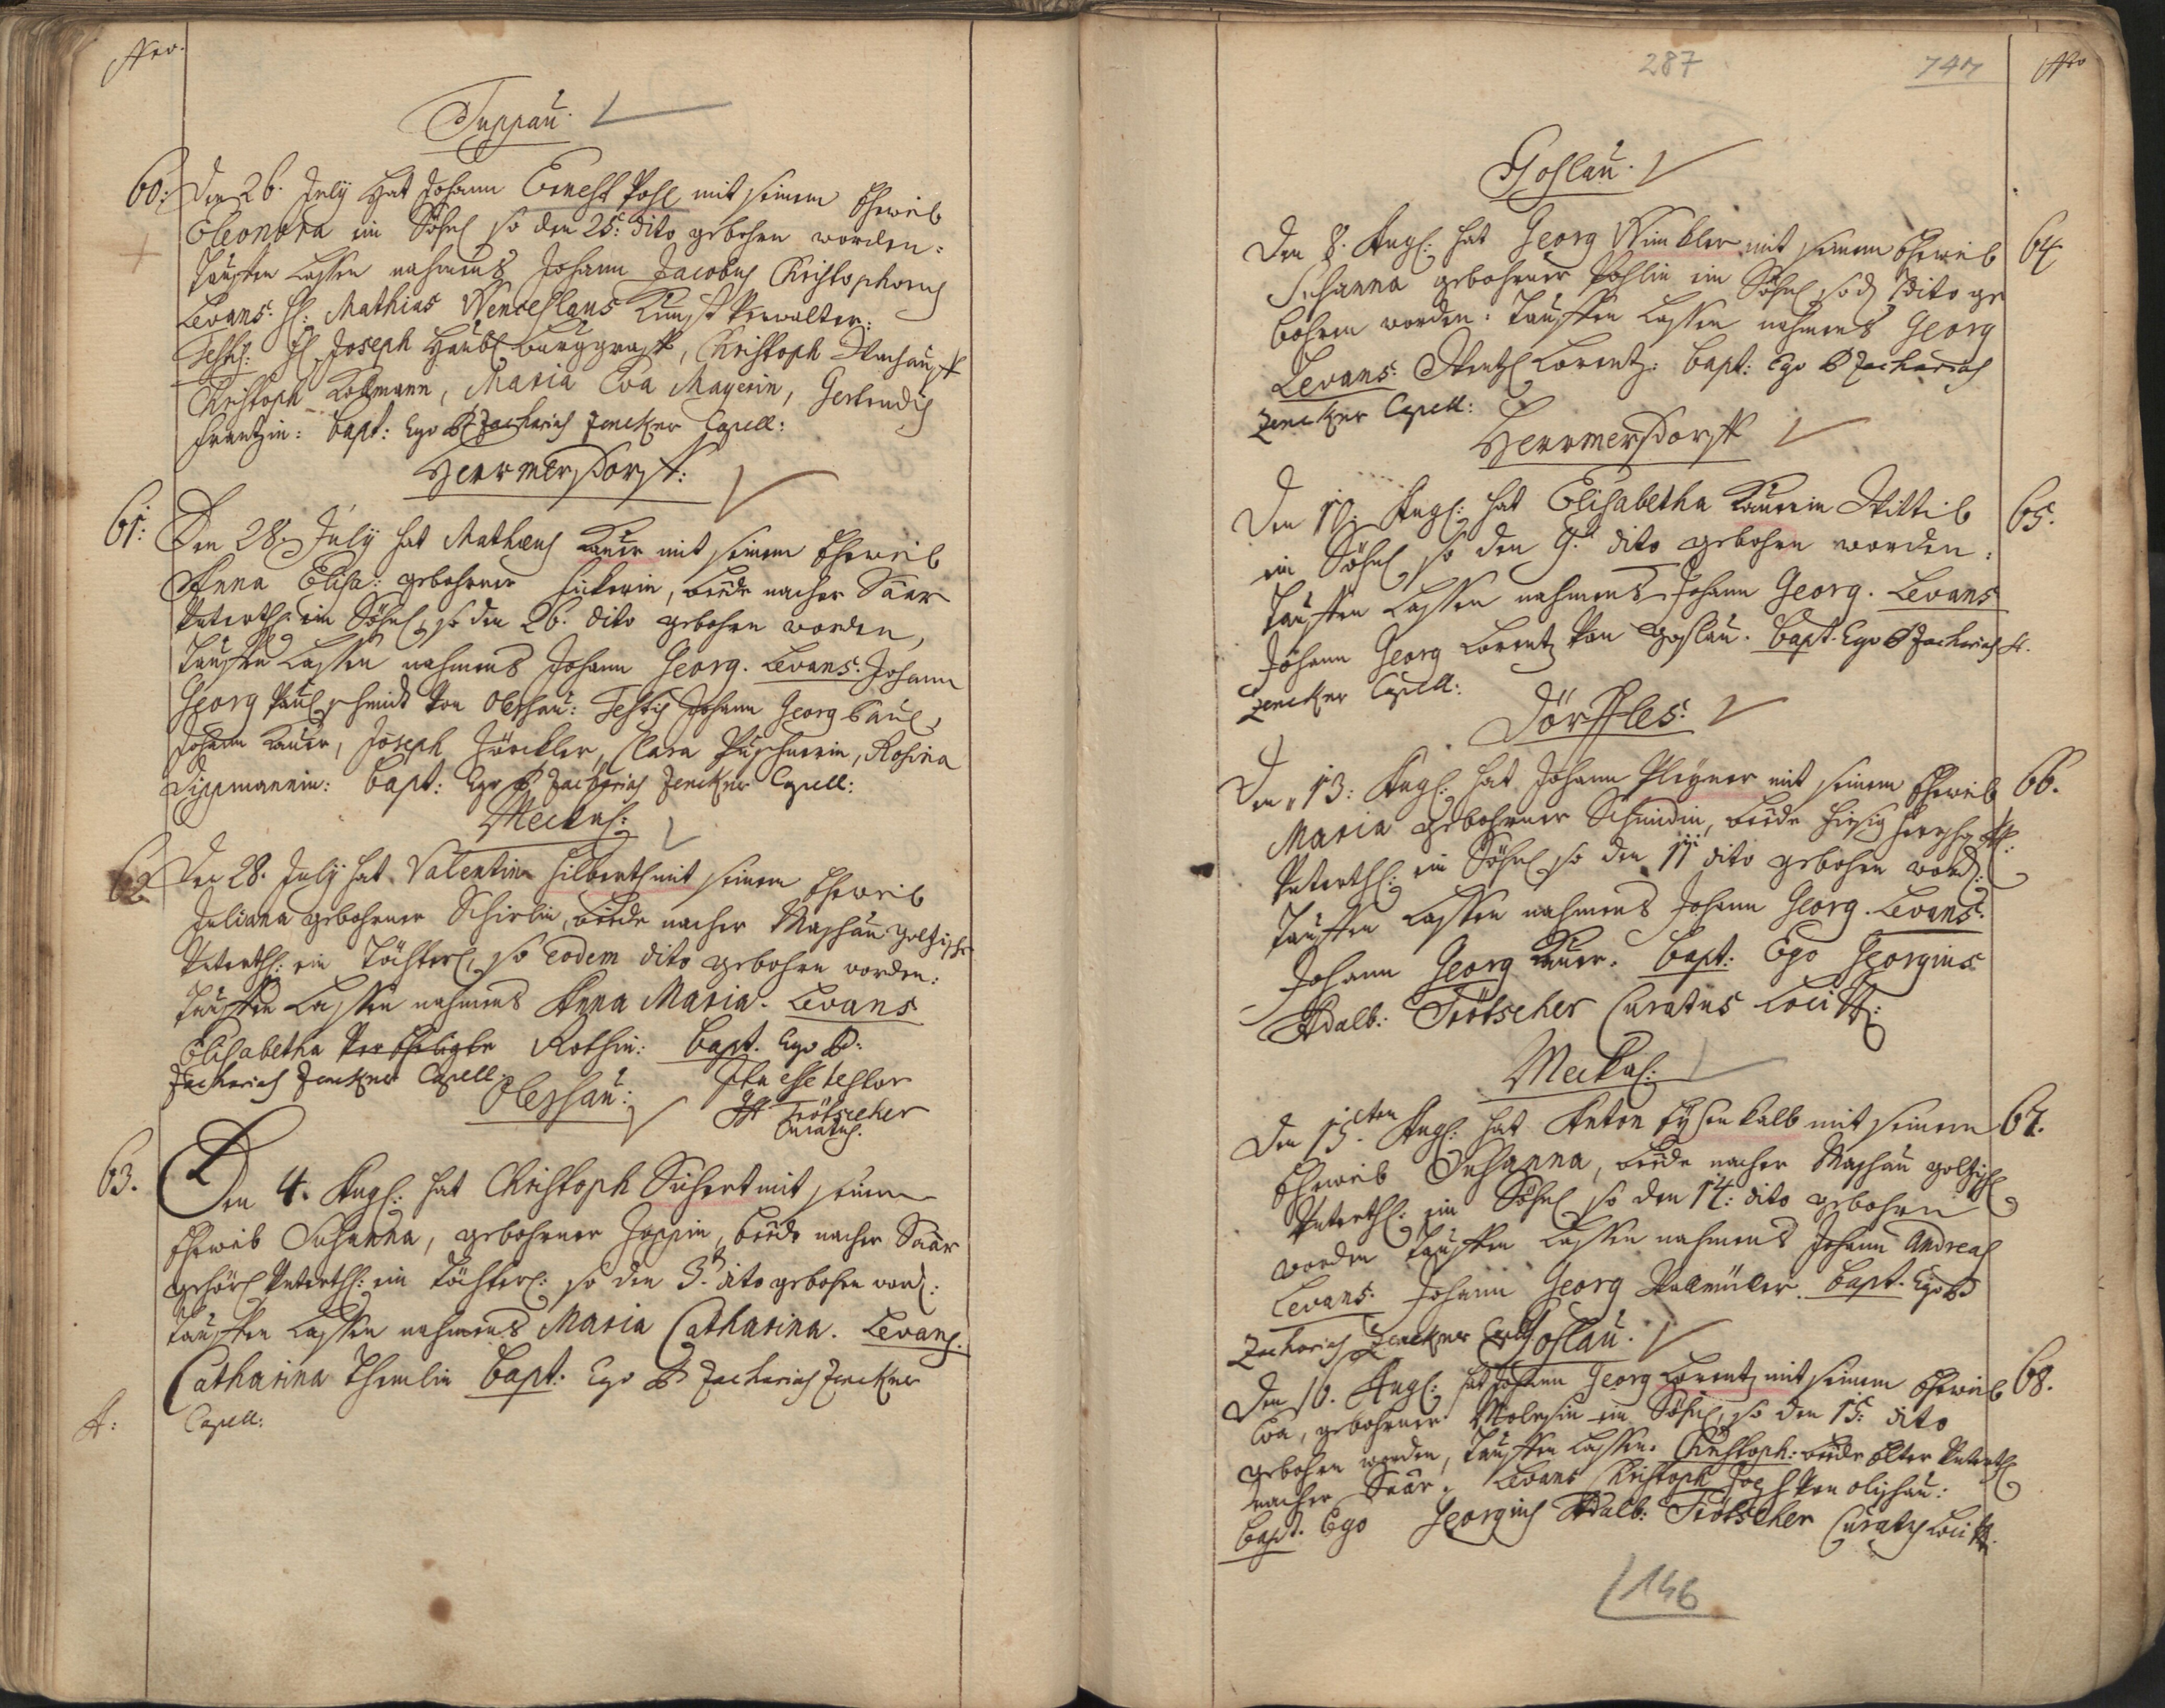 Nro.
Duppau.
60. Den 26. July hat Johann Ernest Pohl mit seinem Eheweib
Eleonora ein Söhnl so den 25: dito gebohrn worden:
Tauffen Lassen nahmens Johann Jacobus Christophorus
Levans: H: Mathias Wenceslaus Verwalter:
Testes: H. Joseph burggraff, Christoph
Christoph Kollmann, Maria Eva Mayerin, Gertrudis
Frantzin: Bapt: Ego P Zacharias Zenckner Capell:
Herrmersdorff:
61: Den 28. July hat Mathæus Kauer mit seinem Eheweib
Anna Elisa: gebohrner beede nacher Säar
Unterth: ein Söhnl, so den 26. dito gebohrn worden,
Tauffen Lassen nahmens Johann Georg. Levans: Johann
Georg Paulschmidt von Oleschau: Testes Johann Georg Paul,
Johann Kauer, Joseph Clara Puschnerin, Rosina
Dippmannin: Bapt: Ego P Zacharias Zenckner Capell:
Meckl:
62 Den 28. July hat Valentin Hilberth mit seinem Eheweib
Juliana gebohrner Schirlin, beede nacher Maschau goltzische
Unterth: ein Töchterl, so eodem dito gebohrn worden:
Tauffen Lassen nahmens Anna Maria. Levans
Elisabetha Rothin: Bapt. Ego P:
Zacharias Zenckner Capell:
Ita esse testor
GA Trötscher
Curatus.
Oleschau:
63. Den 4. Aug: hat Christoph Sichert mit seinem
Eheweib Susanna, gebohrner Hoppin, beede nacher Säar
gehör Unterth: ein Töchterl: so den 3. dito gebohrn word:
Tauffen Lassen nahmens Maria Catharina. Levans.
Catharina Themlin Bapt: Ego P Zacharias Zenckner
Capell:
287
747
Nro
Goslau.
Den 8. Aug: hat Georg Winkler mit seinem Eheweib 64
Susanna gebohrner Pohlin ein Söhnl dito ge
bohrn worden: Tauffen Lassen nahmens Georg
Levans: Wentzl Lorentz: Bapt: Ego P Zacharias
Zenckner Capell:
Herrmersdorff
Den 10: Aug: hat Elisabetha Kauerin Wittib 65.
ein Söhnl so den 9. dito gebohrn worden:
Tauffen Lassen nahmens Johann Georg. Levans
Johann Georg Lorentz von Goslau. Bapt. Ego P Zacharias
Zenckner Capell:
Dörffles:
Den 13: Aug: hat Johann Pleyner mit seinem Eheweib 66.
Maria gebohrner Schmidin, beede hiesig
Unterth: ein Söhnl so den 11 dito gebohrn word:
Tauffen Lassen nahmens Johann Georg. Levans:
Johann Georg Kauer. Bapt: Ego Georgius
Adalb: Trötscher Curatus Loci
Meckl:
Den 15ten Aug: hat Anton Eysenkalb mit seinem 67.
Eheweib Susanna, beede nacher Maschau goltzisch
Unterth: ein Söhnl so den 14: dito gebohrn
worden Tauffen Lassen nahmens Johann Andreas
Levans: Johann Georg Wallmüller. Bapt. Ego P
Zacharias Zenckner Capell
Goslau.
Den 16. Aug: hat Johann Georg Lorentz mit seinem Eheweib 68.
Eva, gebohrner ein Söhnl, so den 15: dito
gebohrn worden, Tauffen Lassen. Christoph: beede Elter Unterth
nacher Säar. Levans Christoph von Oleschau:
Bapt. Ego Georgius Adalb: Trötscher Curatus Loci
146